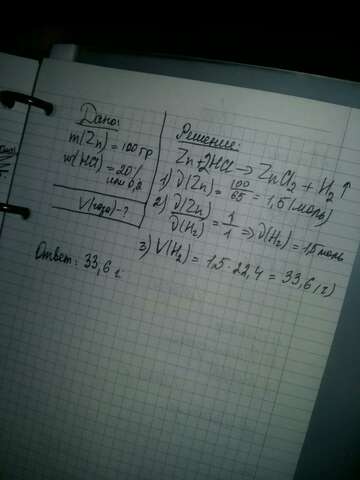 Дано:
m(Zn) = 100 гр
w(HCl) = 20%
или 0,2
V(газа) - ?
Решение:
Zn+2HCl → ZnCl2 + H2↑
1) ν(Zn) = 100/65 = 1,5 (моль)
2) ν(Zn)/ν(H2) = 1/1 ⇒ ν(H2) = 1,5 моль
3) V(H2) = 1,5 · 22,4 = 33,6 (г)
Ответ: 33,6 г